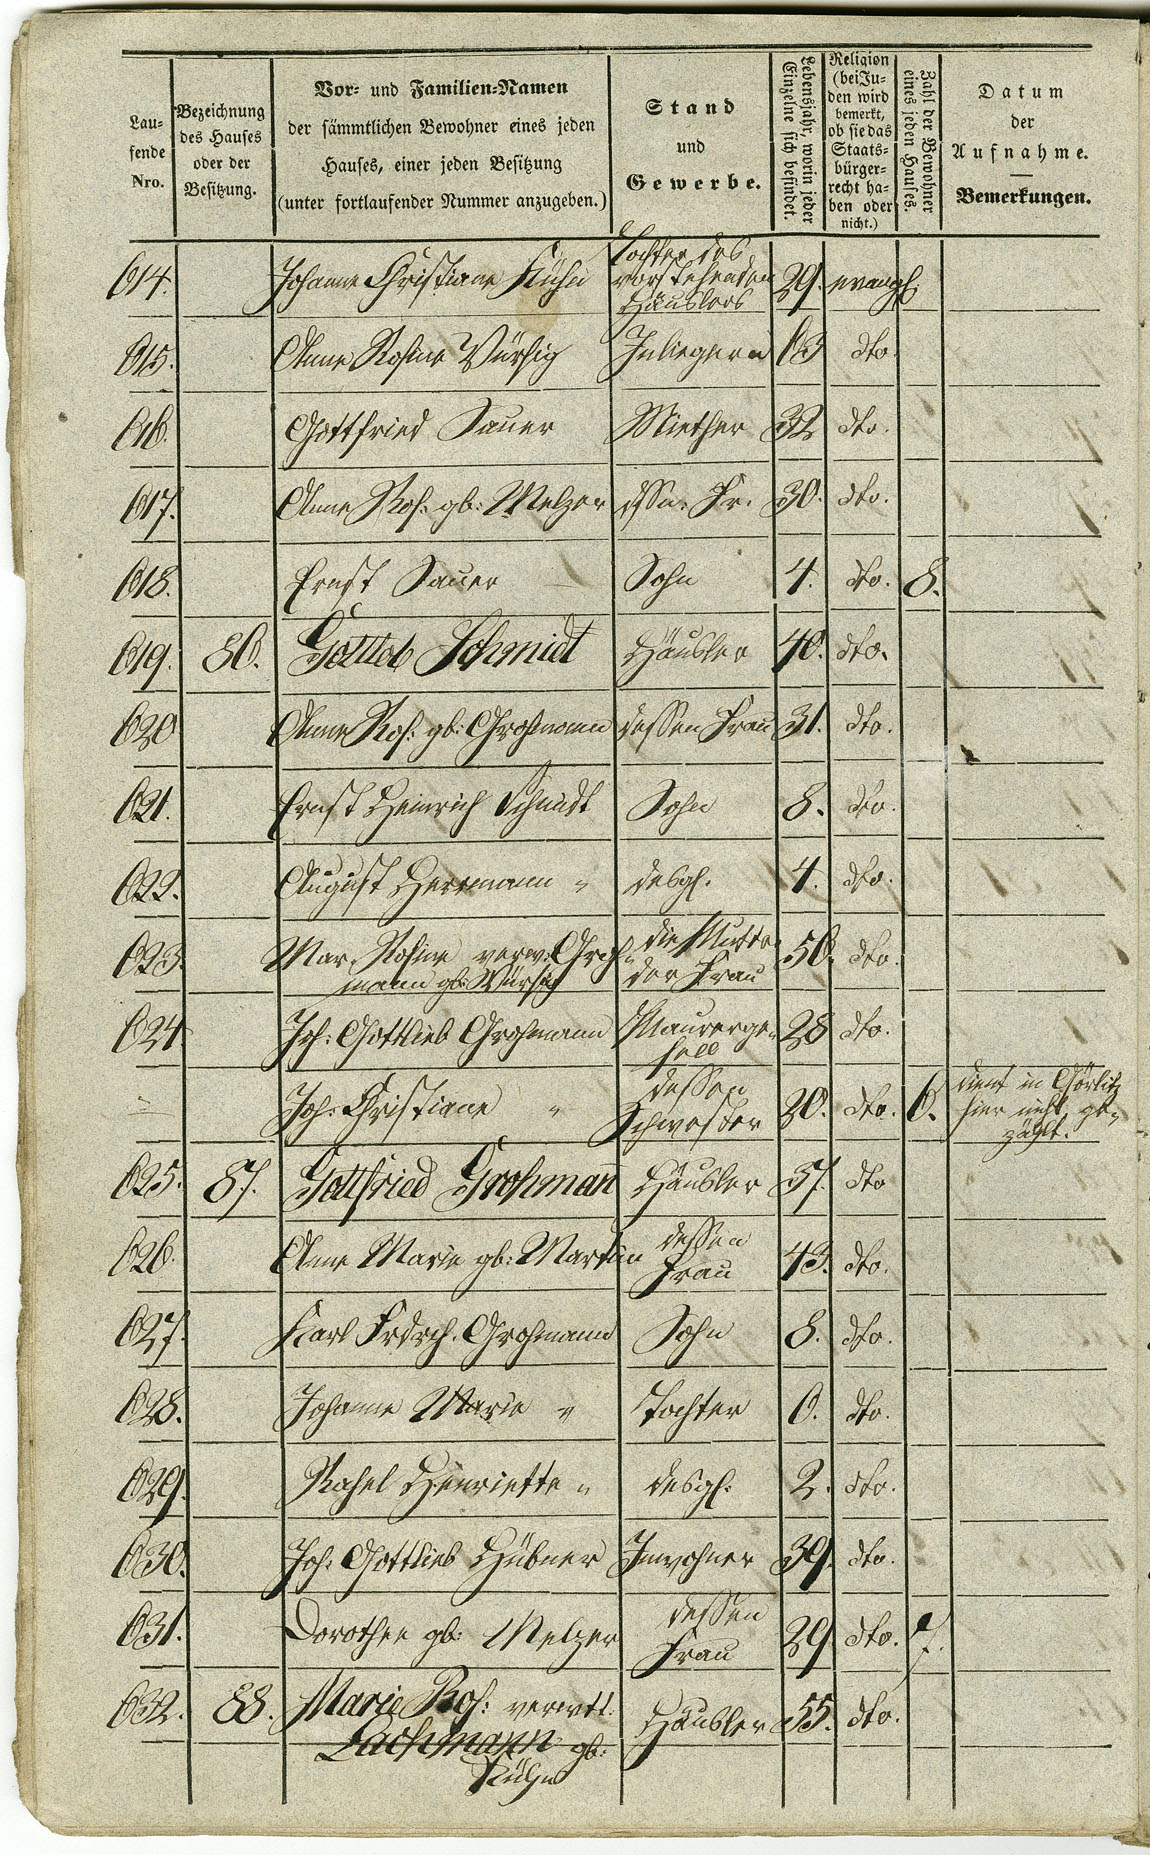 Lau-
fende
Nro.
Bezeichnung
des Hauses
oder der
Besitzung.
Vor- und Familien-Namen
der sämmtlichen Bewohner eines jeden
Hauses, einer jeden Besitzung
(unter fortlaufender Nummer anzugeben.)
Stand
und
Gewerbe.
Lebensjahr, worin jeder
Einzelne sich befindet.
Religion
(bei Ju-
den wird
bemerkt,
ob sie das
Staats-
bürger-
recht ha-
ben oder
nicht.)
Zahl der Bewohner
eines jeden Hauses.
Datum
der
Aufnahme.
Bemerkungen.
614. Johanne Christiane Kühn Tochter des
vorstehenden
Häuslers 29. evangl.
615. Anne Rosine Würsig Inliegerin 63 dto.
616. Gottfried Sauer Miether 32 dto.
617. Anne Ros: gb: Melzer dssn. Fr. 30. dto.
618. Ernst Sauer Sohn 4. dto. 8.
619. 86. Gottlob Schmidt Häusler 40. dto.
620 Anne Ros: gb: Großmann dessen Frau 31. dto.
621. Ernst Heinrich Schmidt Sohn 8. dto.
622. August Herrmann " desgl. 4. dto.
623. Mar. Rosine verw: Groh-
mann gb: Würsig die Mutter
der Frau 56. dto.
624 Joh: Gottlieb Grohmann Maurerge-
sell 28 dto.
Joh: Christiane " dessen
Schwester 20. dto. 6. dient in Görlitz
hier nicht ge-
zählt.
625. 87. Gottfried Grohmann Häusler 37. dto
626. Anne Marie gb: Martin dessen
Frau 43. dto.
627. Karl Frdrch. Grohmann Sohn 8. dto.
628. Johanne Marie " Tochter 6. dto.
629. Rahel Henriette " desgl. 2. dto.
630. Joh: Gottlieb Hübner Inwohner 39. dto.
631. Dorothee gb: Melzer dessen
Frau 29 dto. 7.
632. 88. Marie Ros: verwtt.
Lachmann gb:
Kühn Häusler 55. dto.